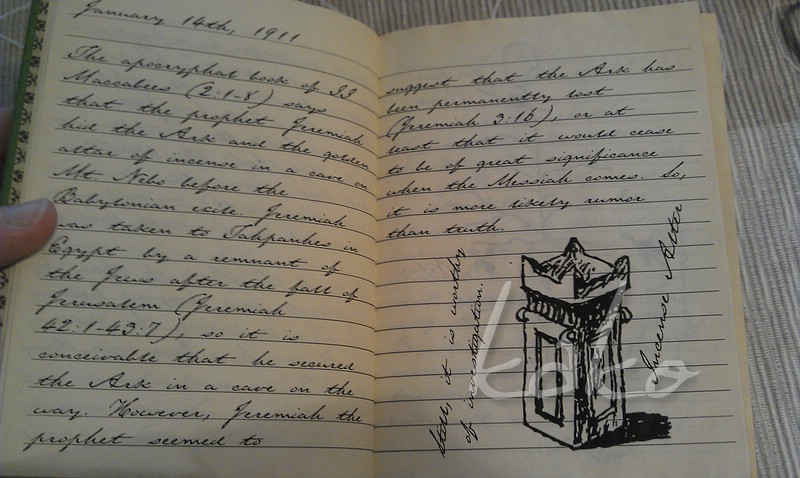 January 14th, 1911
The apocryphal book of II
Maccabees (2:1-8) says
that the prophet Jeremiah
hid the Ark and the golden
altar of incense in a cave on
Mt Nebo before the
Babylonian exile. Jeremiah
was taken to Tahpanhes in
Egypt by a remnant of
the Jews after the fall of
Jerusalem (Jeremiah
42:1-43:7), so it is
conceivable that he secured
the Ark in a cave on the
way. However, Jeremiah the
prophet seemed to
suggest that the Ark has
been permanently lost
(Jeremiah 3:16), or at
least that it would cease
to be of great significance
when the Messiah comes. So,
it is more likely rumor
than truth.
Still, it is worthy
of investigation.
Incense Alter
koko